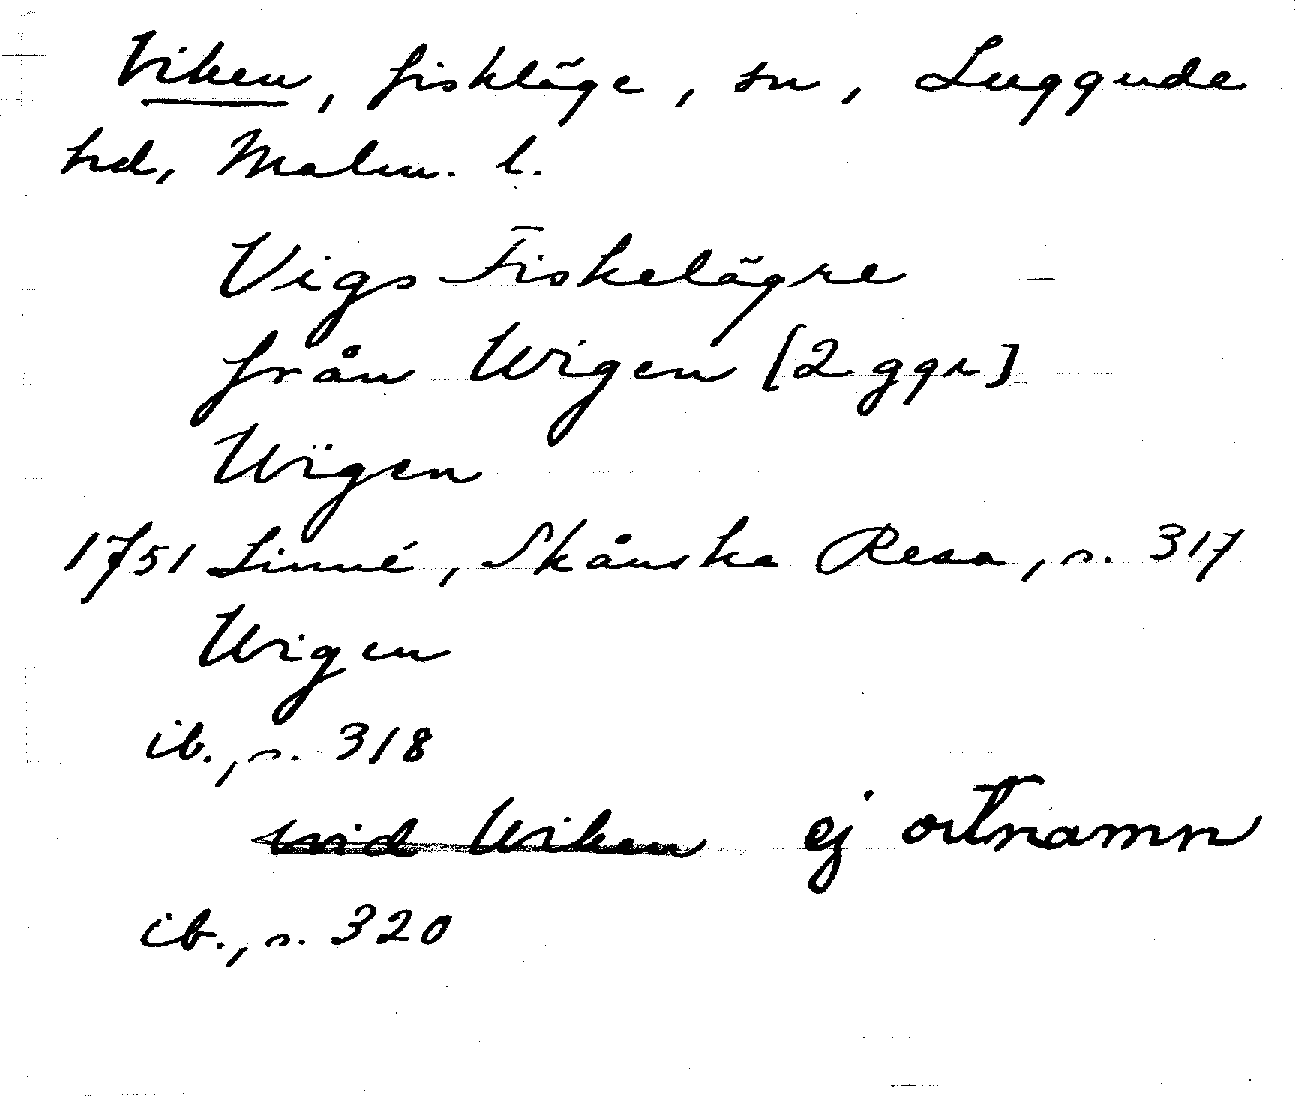 Viken, fiskläge, sn, Luggude
hd, Malm. l.
Vigs Fiskelägre
från Wigen [2 ggr]
Wigen
1751 Linné, Skånska Resa, s. 317
Wigen
ib., s. 318
wid Wiken ej ortnamn
ib., s. 320